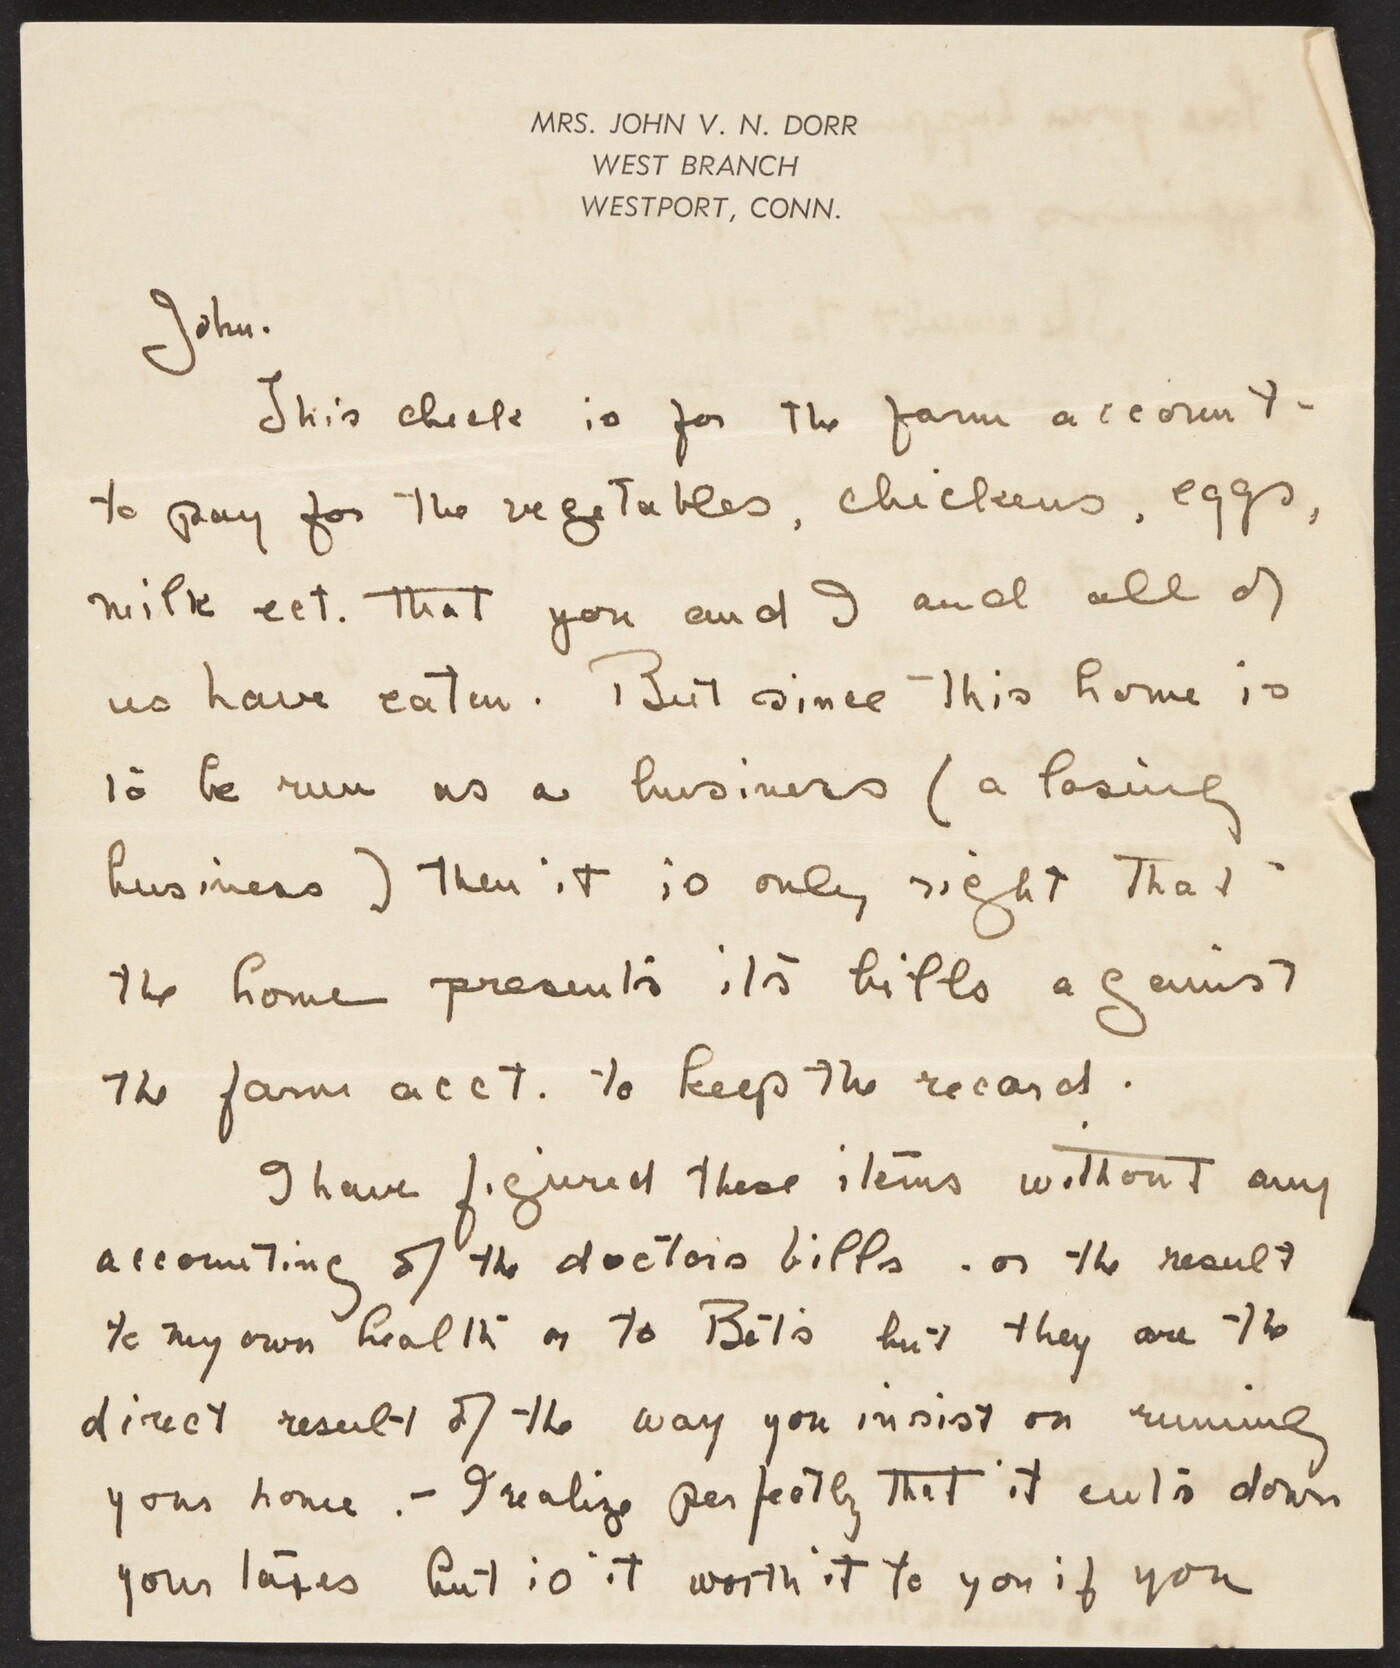 MRS. JOHN V. N. DORR
WEST BRANCH
WESTPORT, CONN.
John.
This check is for the farm account-
to pay for the vegetables, chickens, eggs,
milk ect. that you and I and all of
us have eaten. But since this home is
to be run as a business (a losing
business) then it is only right that
the home presents its bills against
the farm acct. to keep the record.
I have figured these items without any
accounting of the doctors bills . or the result
to my own health or to Bets but they are the
direct result of the way you insist on running
your home .- I realize perfectly that it cuts down
your taxes but is it worth it to you if you